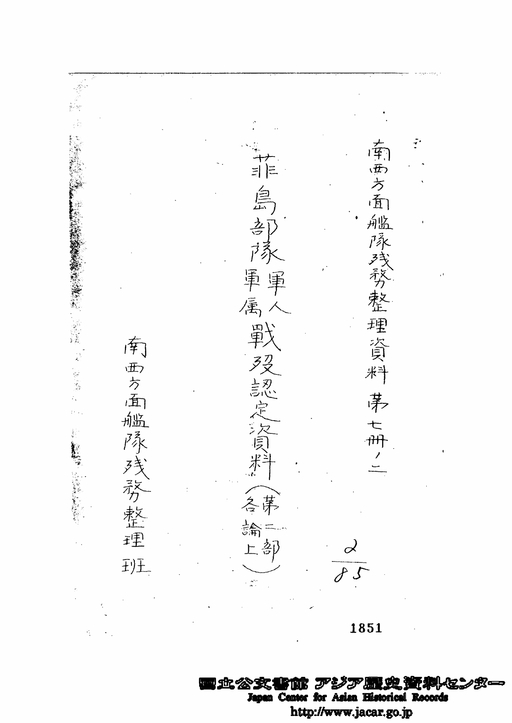 南西方面艦隊残務整理資料 第七冊ノ二
菲島部隊軍人軍属戰歿認定資料(第二部各論上)
南西方面艦隊残務整理班
2/85
1851
国立公文書館 アジア歴史資料センター
Japan Center for Asian Historical Records
http://www.jacar.go.jp